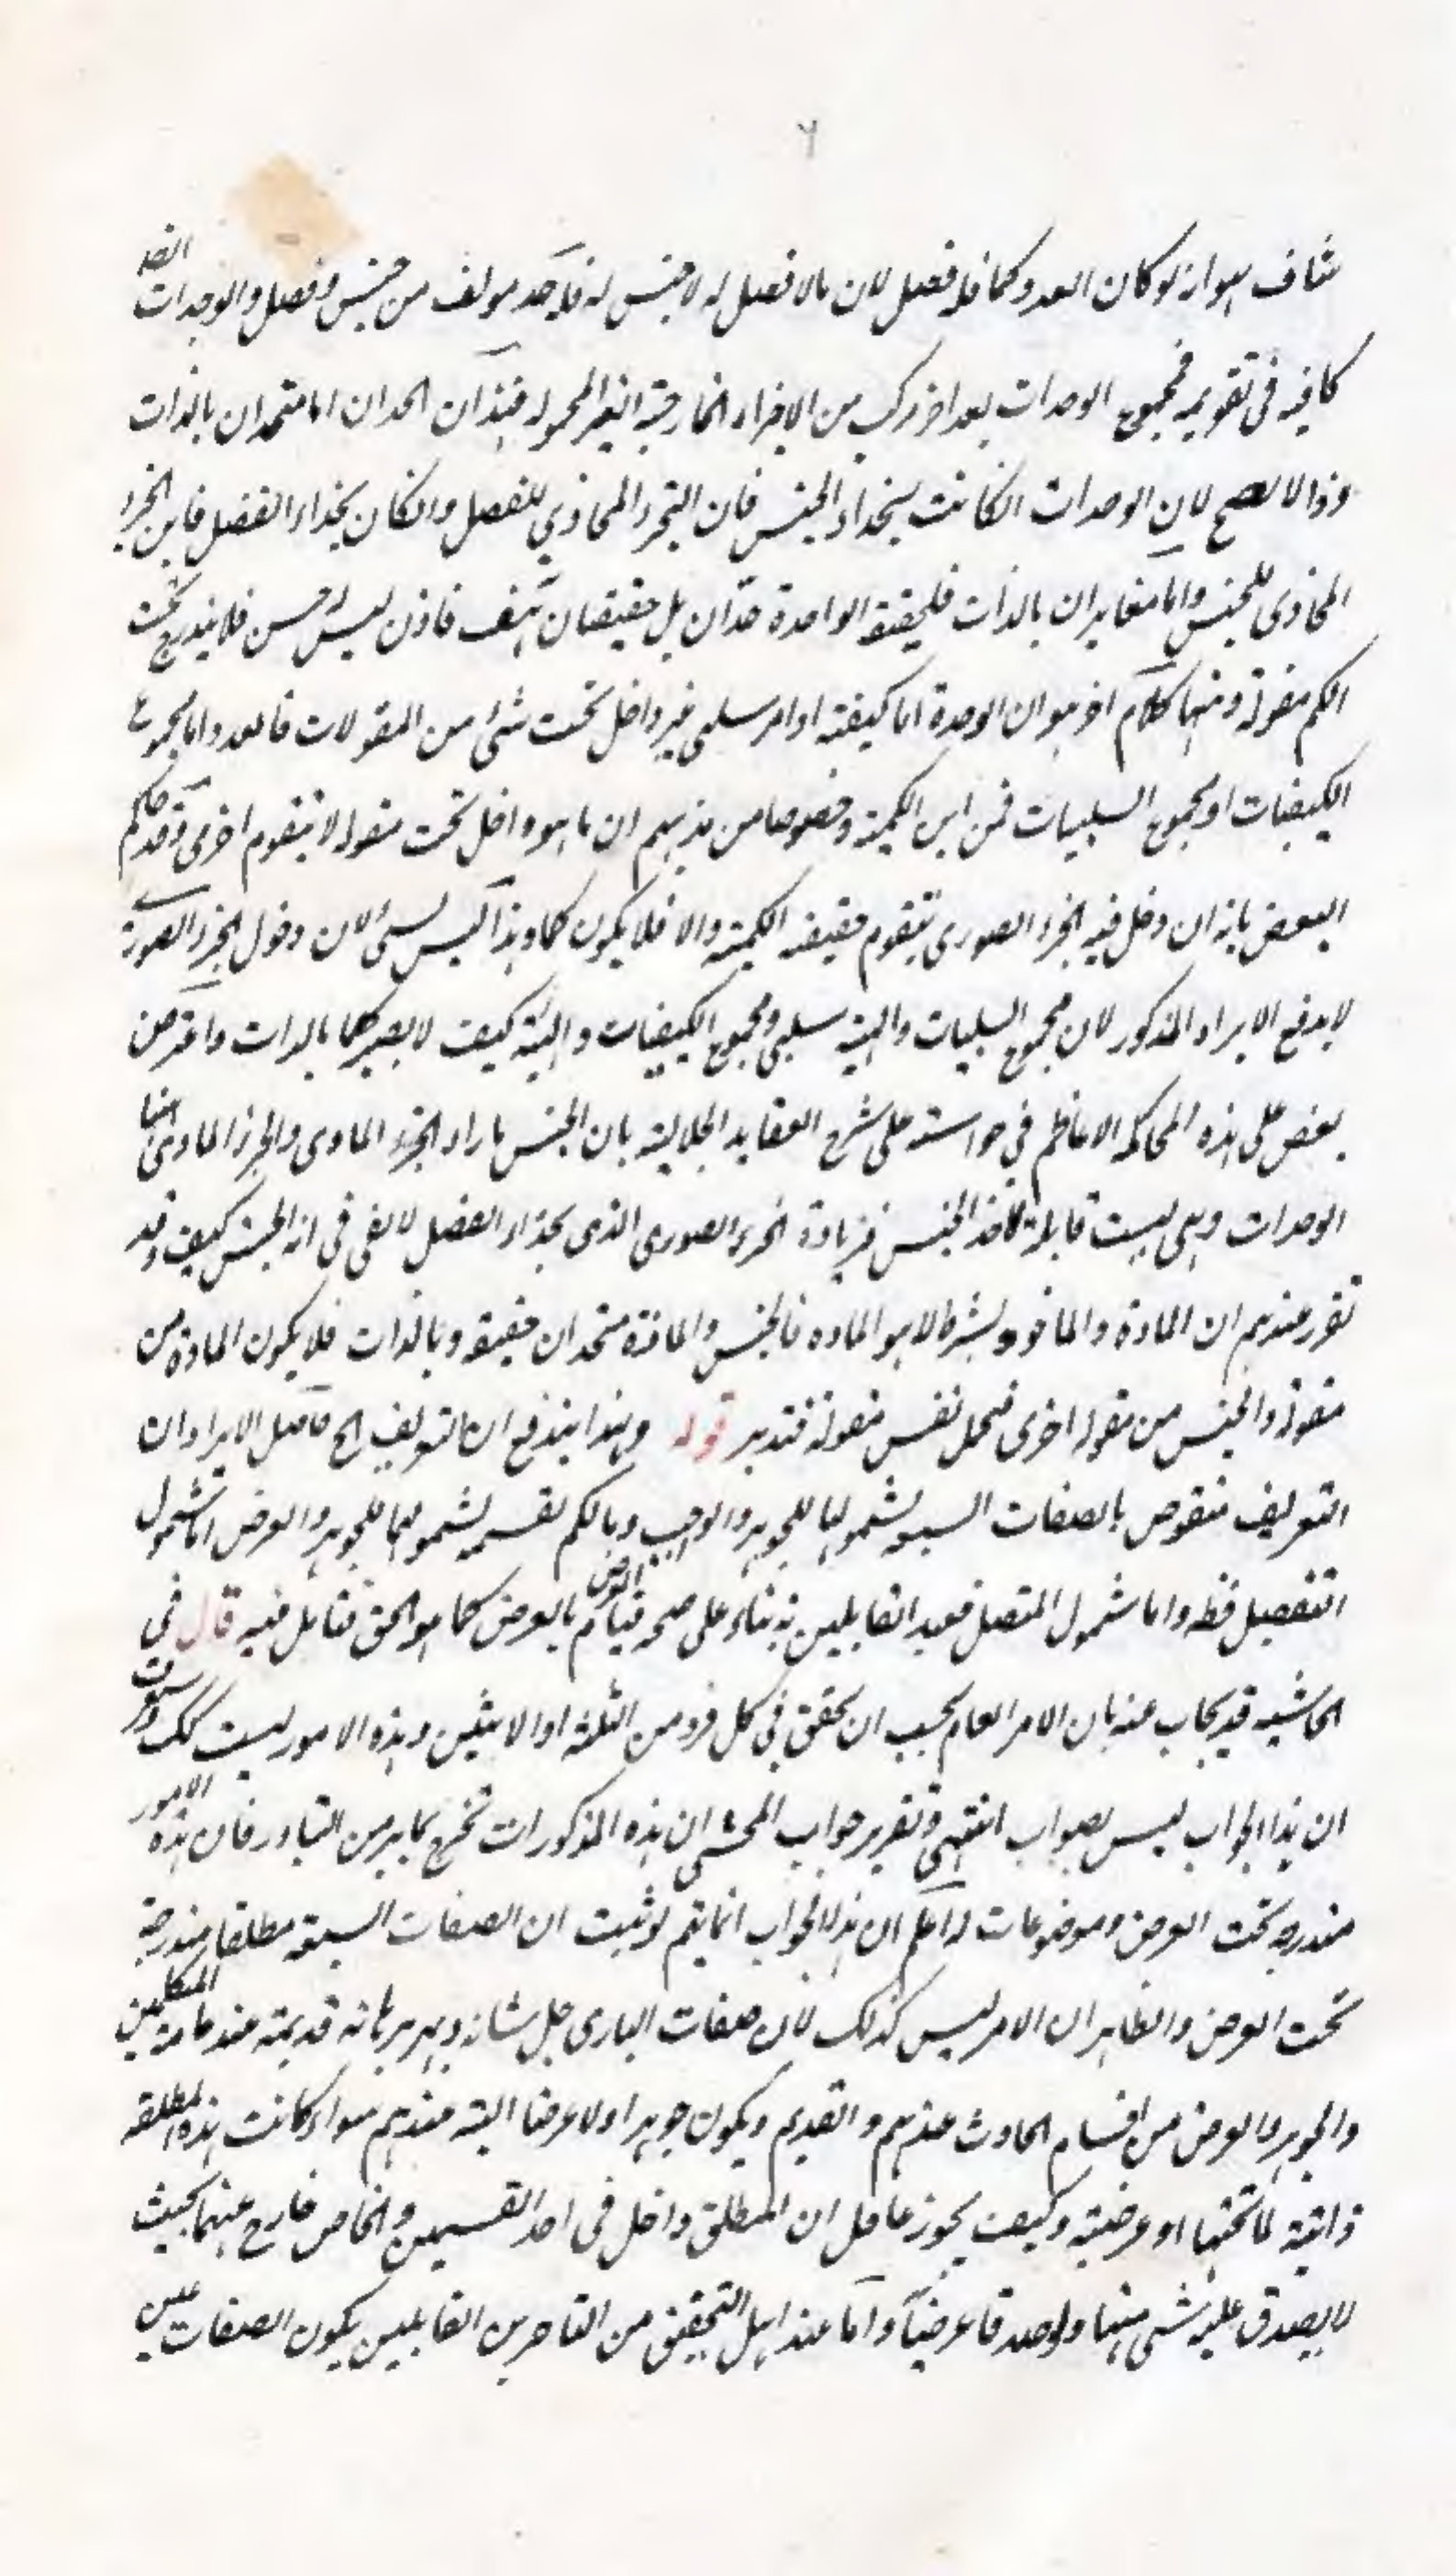 ٦
شاف هو انه لو كان العدد كما فله فصل لان ما لا فصل له لا جنس له فله حد مولف من جنس وفصل والوحدات
كافيه فى تقويمه فمجموع الوحدات بعد اخر مركب من الاجزاء الخارجية الغير المحمولة فهذان الحدان اما متحدان بالذات
وذا لا يصح لان الوحدات انكانت بحذاء الجنس فاين الجزء المحاذي للفصل وانكان بحذاء الفصل فاين الجزء
المحاذى للجنس واما متغايران بالذات فلحقيقة الواحدة حدان بل حقيقتان هف فاذن ليس له جنس فلا يندرج تحت
الكم مقولة وههنا كلام اخر هو ان الوحدة اما كيفية او امر سلبى غير داخل تحت شئ من المقولات فالعدد اما مجموع
الكيفيات او مجموع السلبيات فمن اين الكمية وخصوصا من مذهبهم ان ما هو داخل تحت مقولة لا يتقوم اخرى وقد حاكم
البعض بانه ان دخل فيه الجزء الصورى يتقوم حقيقة الكمية والا فلا يكون كما وهذا ليس بشئ لان دخول الجزء الصورى
لا يدفع الايراد المذكور لان مجموع السلبيات والهيئة سلبى ومجموع الكيفيات والهيئة كيف لا يصير كما بالذات واعترض
بعض على هذه المحاكمة الاعاظم في حواشيه على شرح العقايد الجلالية بان الجنس بازاء الجزء المادى والجزء المادى ههنا
الوحدات وهى ليست قابلة لاخذ الجنس فزيادة الجزء الصورى الذى بحذاء الفصل لا يفى فى اخذ الجنس كيف وقد
تقرر عندهم ان المادة والماخوذ بشرط لا هو المادة فالجنس والمادة متحدان حقيقة وبالذات فلا يكون المادة من
مقولة والجنس من مقولة اخرى فتحمل نفس مقولة فتدبر قوله وبهذا يندفع ان التعريف الخ حاصل الايراد ان
التعريف منقوض بالصفات السبعة لشمولها للجوهر والواجب وبالكم بقسميه لشمولهما للجوهر والعرض اما شمول
المنفصل فظ واما شمول المتصل فعند القايلين به بناء على صحة قيام العرض بالعرض كما هو الحق فتامل فيه قال في
الحاشية قد يجاب عنه بان الامر العام يجب ان يتحقق في كل فرد من الثلثة او الاثنين وهذه الامور ليست كك وستعرف
ان هذا الجواب ليس بصواب انتهى وتقرير جواب المحشى ان هذه المذكورات تخرج بما مر من التبادر فان هذه الامور
مندرجة تحت العرض وموضوعات له اعلم ان هذا الجواب انما يتم لو ثبت ان الصفات السبعة مطلقا مندرجة
تحت العرض والظاهر ان الامر ليس كذلك لان صفات البارى جل شانه وبهر برهانه قديمة عند عامة المتكلمين
والجوهر والعرض من اقسام الحادث عندهم والقديم ويكون جوهرا ولا عرضا البتة عندهم سواء كانت هذه المطلقة
ذاتية لما تحتها او عرضية وكيف يجوز عاقل ان المطلق داخل فى احد القسمين والخاص خارج عنهما بحيث
لا يصدق عليه شئ منهما ولو صدقا عرضيا واما عند اهل التحقيق من المتاخرين القايلين بكون الصفات عين